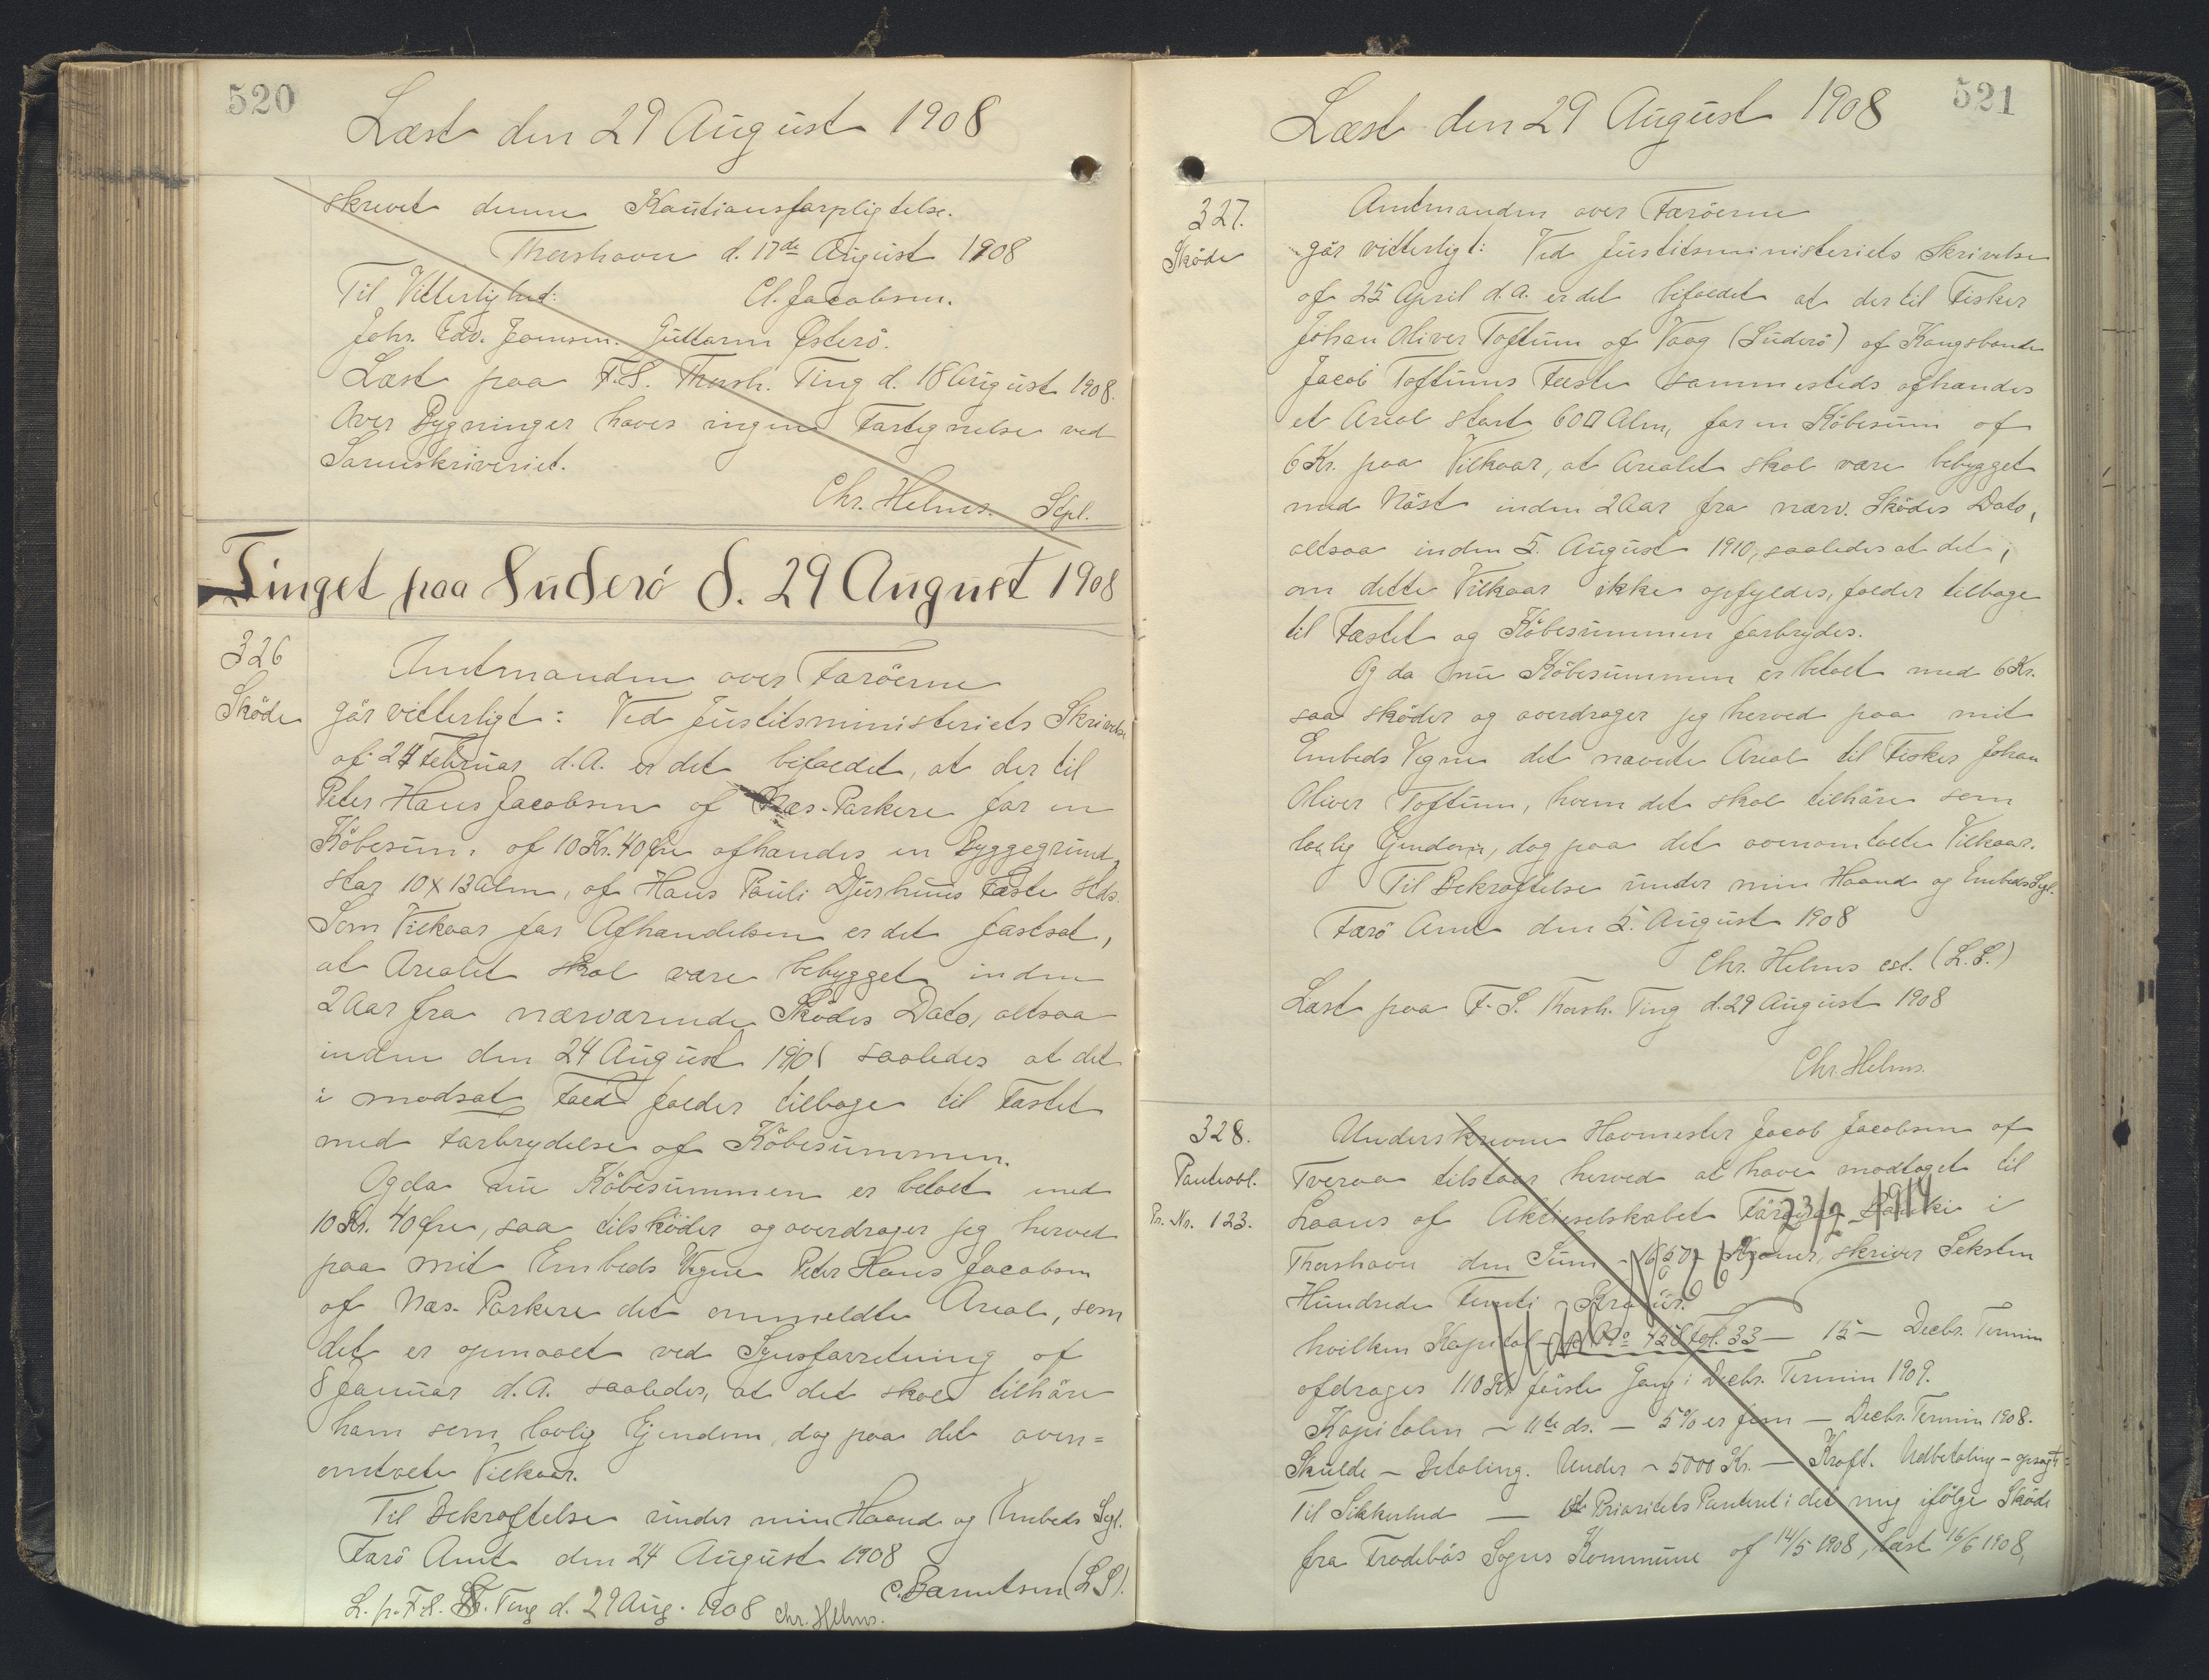 520
Læst den 29 August 1908
skrevet denne Kautionsforpligtelse.
Thorshavn d. 17de August 1908
Til Vitterlighed: Cl. Jacobsen.
Johs. Edv. Joensen. Guttorm Østerö.
Læst paa F.S. Thorsh. Ting d. 18 August 1908.
Over Bygninger haves ingen Fortegnelse ved
Sorenskriveriet.
Chr. Helms. Sgpl.
Tinget paa Suderö d. 29 August 1908
326
Sköde
Amtmanden over Færöerne
gör vitterligt: Ved Justitsministeriets Skrivelse
af 24 Februar d.A. er det bifaldet, at der til
Peter Hans Jacobsen af Næs-Porkere for en
Köbesum af 10 Kr. 40 Øre afhændes en Byggegrund,
stor 10 x 13 Alen, af Hans Pauli Djurhuus Fæste stds.
Som Vilkaar for Afhændelsen er det fastsat,
at Arealet skal være bebygget inden
2 Aar fra nærværende Sködes Dato, altsaa
inden den 24 August 1910 saaledes at det
i modsat Fald falder tilbage til Fæstet
med Forbrydelse af Köbesummen.
Og da nu Köbesummen er betalt med
10 Kr. 40 Øre, saa tilsköder og overdrager jeg herved
paa mit Embeds Vegne Peter Hans Jacobsen
af Næs-Porkere det ommeldte Areal, som
det er opmaalt ved Synsforretning af
8 Januar d.A. saaledes, at det skal tilhöre
ham som lovlig Ejendom, dog paa det oven=
omtalte Vilkaar.
Til Bekræftelse under min Haand og Embeds Sgl.
Færö Amt den 24 August 1908
C. Bærentsen (L.S.)
L. p. F.S. Ting d. 29 Aug. 1908 Chr. Helms.
521
Læst den 29 August 1908
327.
Sköde
Amtmanden over Færöerne
gör vitterligt: Ved Justitsministeriets Skrivelse
af 25 April d.A. er det bifaldet at der til Fisker
Johan Oliver Toftum af Vaag (Suderö) af Kongsbonde
Jacob Toftums Fæste sammesteds afhændes
et Areal stort 60 □ Alen, for en Köbesum af
6 Kr. paa Vilkaar, at Arealet skal være bebygget
med Nöst inden 2 Aar fra nærv. Sködes Dato,
altsaa inden 5. August 1910, saaledes at det,
om dette Vilkaar ikke opfyldes, falder tilbage
til Fæstet og Köbesummen forbrydes.
Og da nu Köbesummen er betalt med 6 Kr.
saa sköder og overdrager jeg herved paa mit
Embeds Vegne det nævnte Areal til Fisker Johan
Oliver Toftum, hvem det skal tilhöre som
lovlig Ejendom, dog paa det ovenomtalte Vilkaar.
Til Bekræftelse under min Haand og Embeds Sgl.
Færö Amt den 5. August 1908
Chr. Helms cst. (L.S.)
Læst paa F.S. Thorsh. Ting d. 29 August 1908
Chr. Helms.
328.
Panteobl.
Pr. Nr. 123.
Underskrevne Havnemester Jacob Jacobsen af
Tveraa tilstaar herved at have modtaget til
Laans af Aktieselskabet Föroya Banki i
23/2 1914
Thorshavn den Sum - 1650 - Kroner, skriver Seksten
Hundrede Femti - Kroner.
hvilken Kapital - No 458 fol. 33 - 15 - Decbr. Termin
afdrages 110 Kr. förste Gang i Decbr. Termin 1909.
Kapitalen - 11te ds. - 5% er fem - Decbr. Termin 1908.
Skulde - Betaling. Under - 5000 Kr. - Kraft. Udbetaling - opsagt=
Til Sikkerhed - 1ste Prioritets Panteret i det mig ifölge Sköde
fra Frodebös Sogns Kommune af 14/5 1908, læst 16/6 1908,